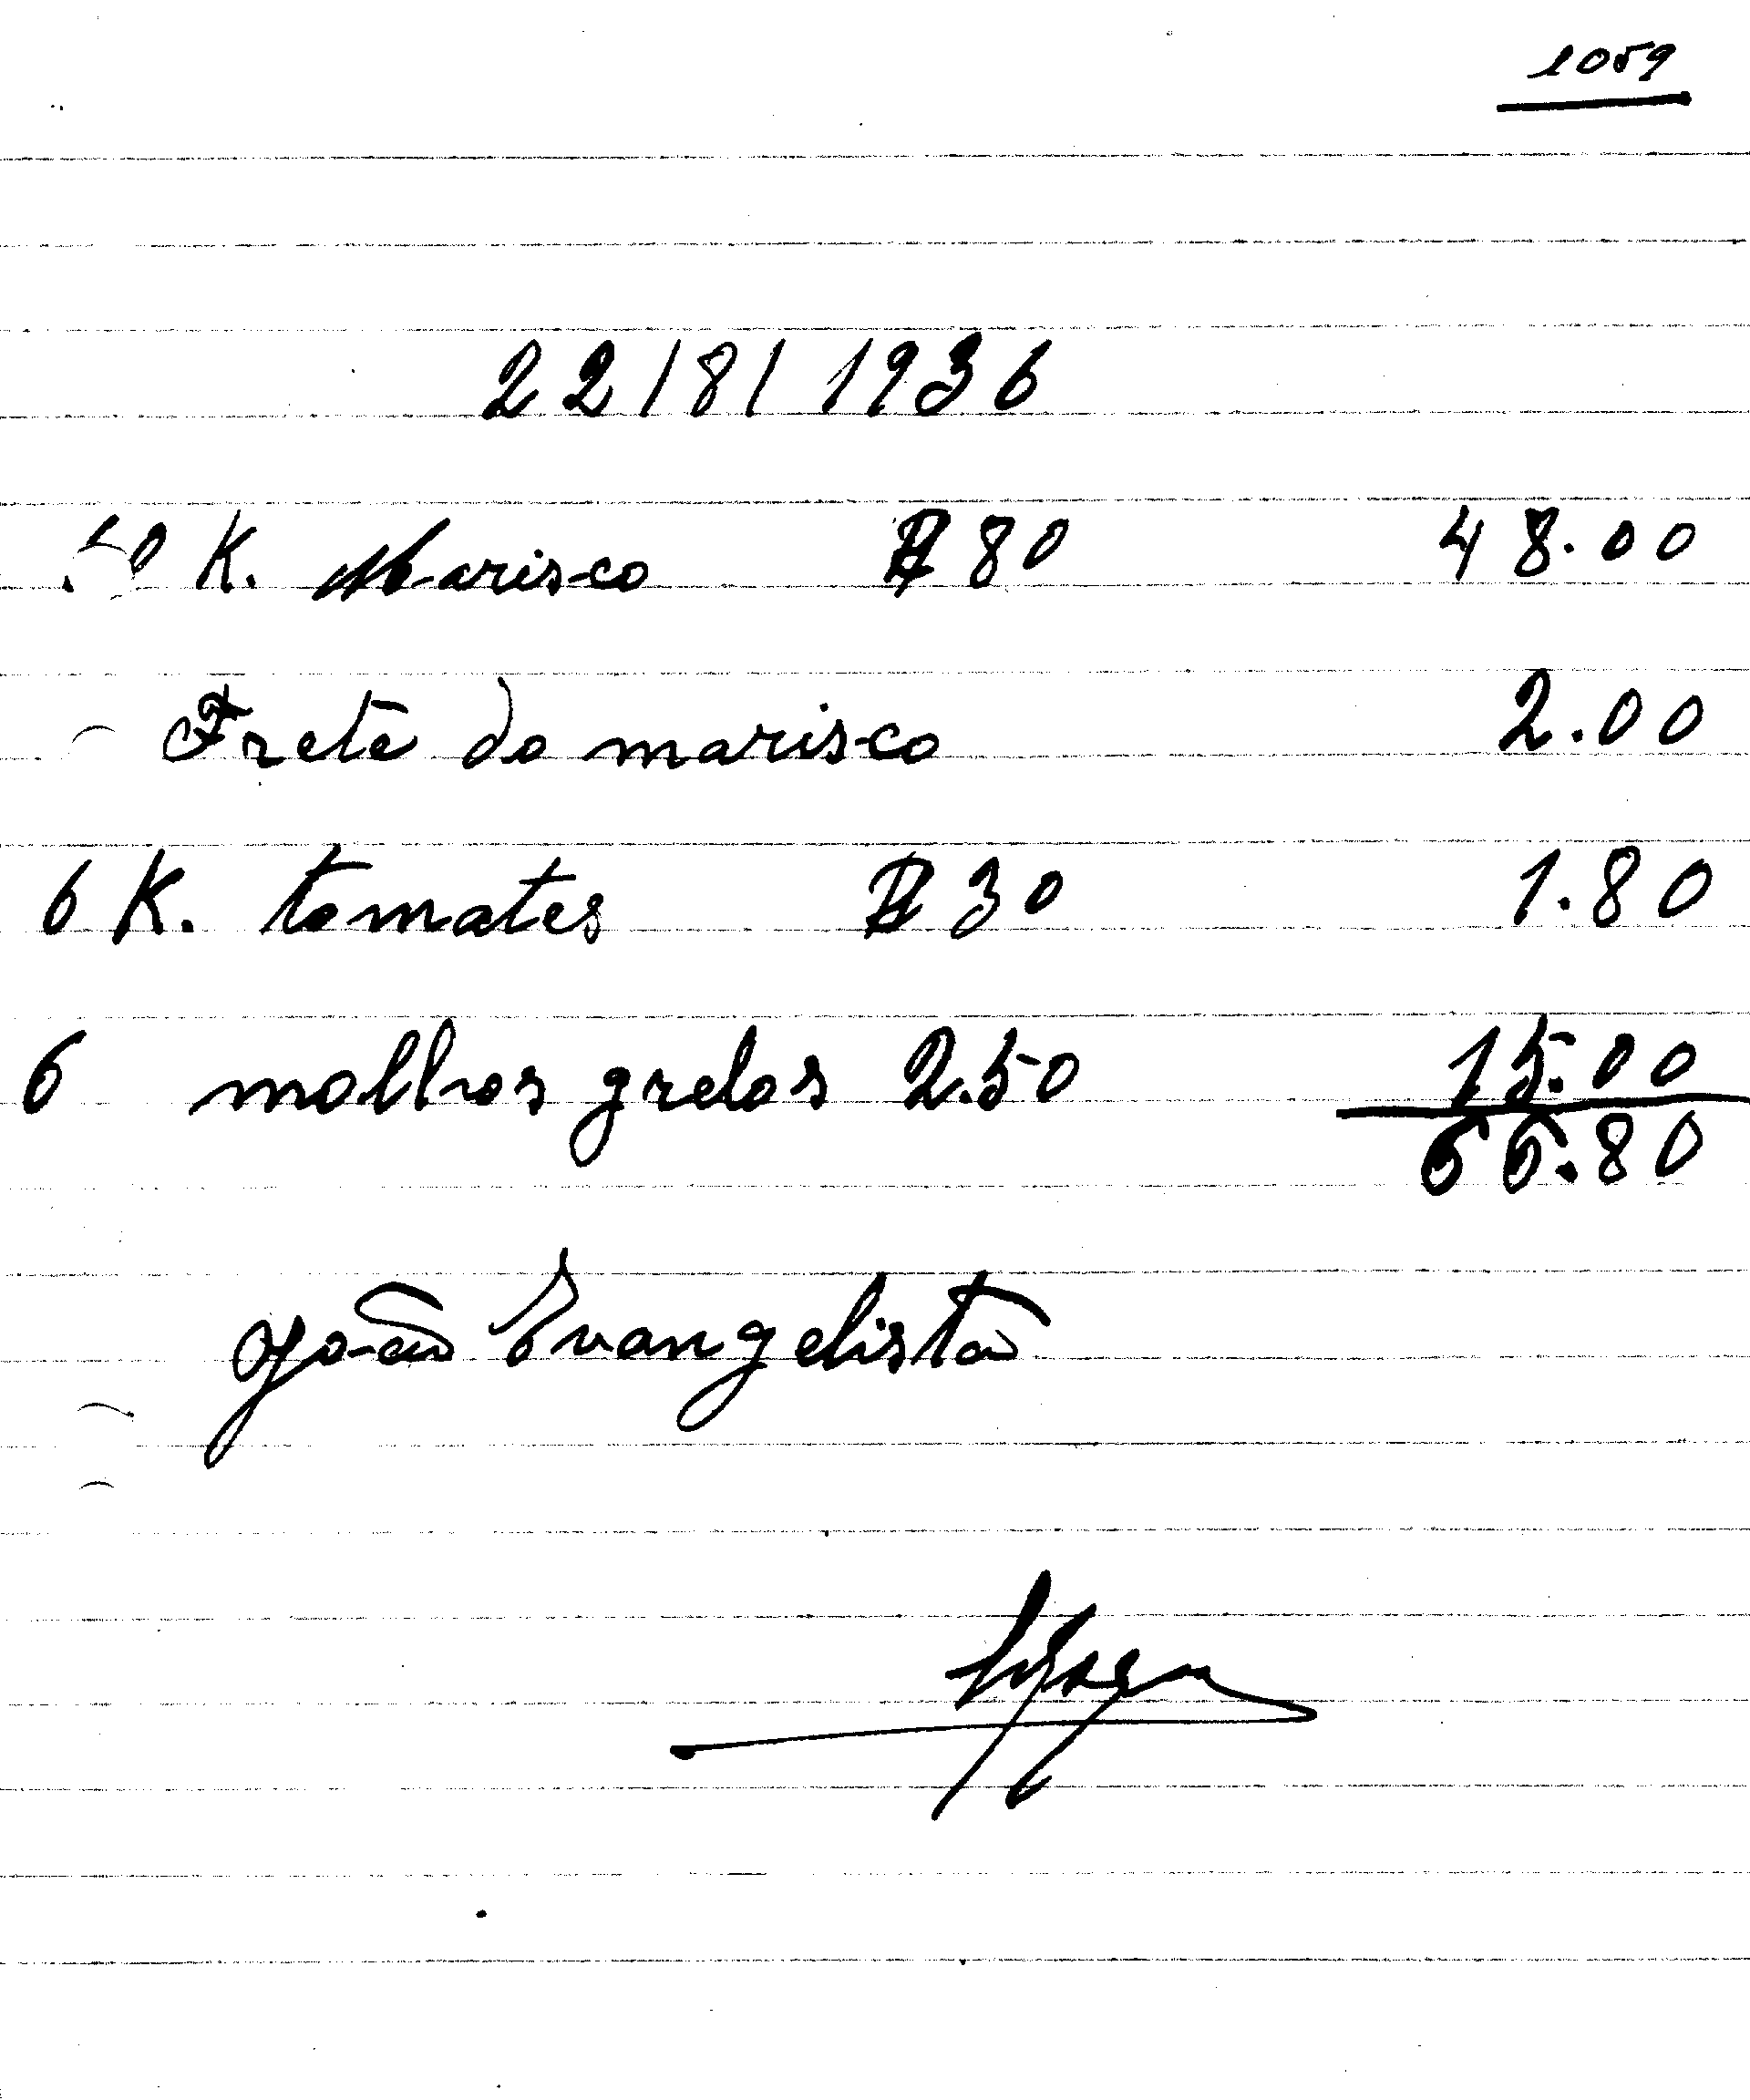 1059
22/8/1936
K. Marisco 80 48.00
Frete do marisco 2.00
6 K. tomates 30 1.80
6 molhos grelos 2.50 15.00
66.80
João Evangelista